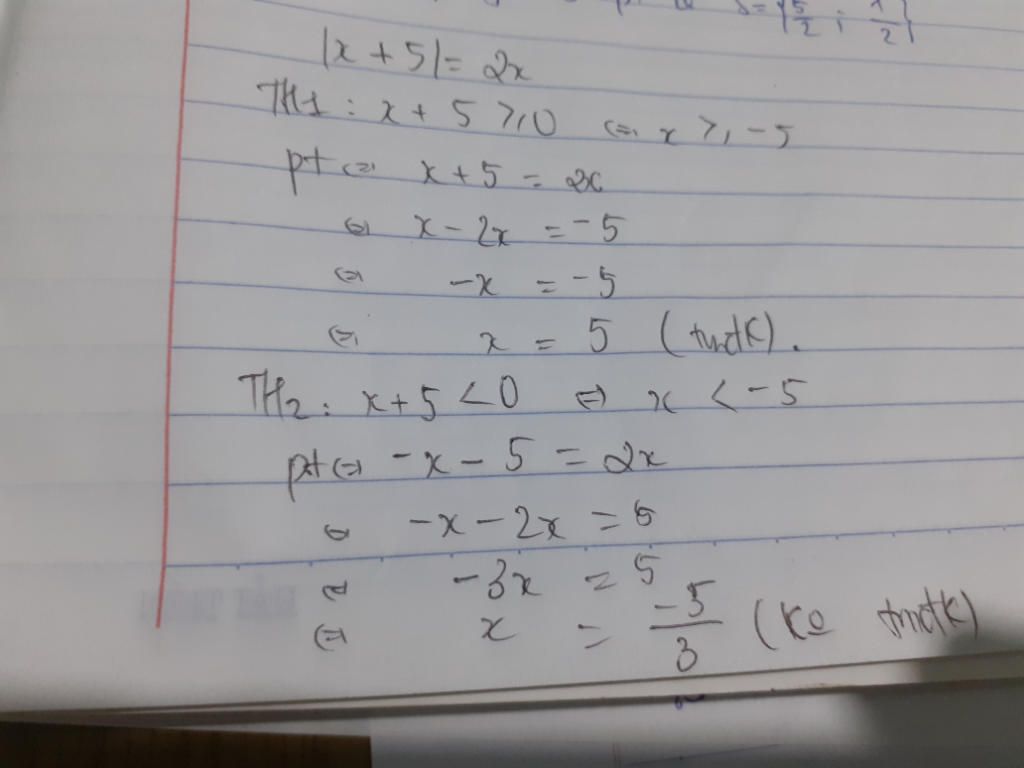 S={5/2 ; 1/2}
|x + 5| = 2x
TH1 : x + 5 ⩾ 0 ⇔ x ⩾ -5
pt ⇔ x + 5 = 2x
⇔ x - 2x = -5
⇔ -x = -5
⇔ x = 5 (tmđk).
TH2 : x + 5 < 0 ⇔ x < -5
pt ⇔ -x - 5 = 2x
⇔ -x - 2x = 5
⇔ -3x = 5
⇔ x = -5/3 (ko tmđk)